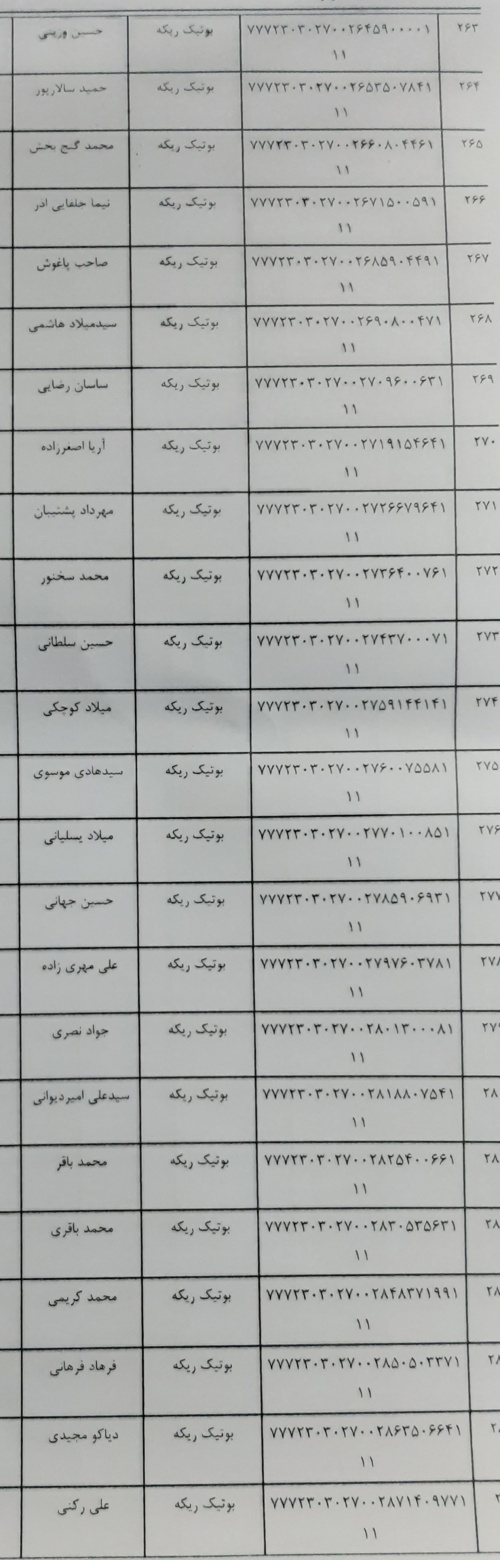 ۲۶۳ ۷۷۷۲۳۰۳۰۲۷۰۰۲۶۴۵۹۰۰۰۰۱ بوتیک ریکه حسن وریثی
۱۱
۲۶۴ ۷۷۷۲۳۰۳۰۲۷۰۰۲۶۵۳۵۰۷۸۴۱ بوتیک ریکه حمید سالارپور
۱۱
۲۶۵ ۷۷۷۲۳۰۳۰۲۷۰۰۲۶۶۰۸۰۴۴۶۱ بوتیک ریکه محمد گنج بخش
۱۱
۲۶۶ ۷۷۷۲۳۰۳۰۲۷۰۰۲۶۷۱۵۰۰۵۹۱ بوتیک ریکه نیما خلفایی اذر
۱۱
۲۶۷ ۷۷۷۲۳۰۳۰۲۷۰۰۲۶۸۵۹۰۴۴۹۱ بوتیک ریکه صاحب یاغوش
۱۱
۲۶۸ ۷۷۷۲۳۰۳۰۲۷۰۰۲۶۹۰۸۰۰۴۷۱ بوتیک ریکه سیدمیلاد هاشمی
۱۱
۲۶۹ ۷۷۷۲۳۰۳۰۲۷۰۰۲۷۰۹۶۰۰۶۳۱ بوتیک ریکه ساسان رضایی
۱۱
۲۷۰ ۷۷۷۲۳۰۳۰۲۷۰۰۲۷۱۹۱۵۴۶۴۱ بوتیک ریکه آریا اصغرزاده
۱۱
۲۷۱ ۷۷۷۲۳۰۳۰۲۷۰۰۲۷۲۶۶۷۹۶۴۱ بوتیک ریکه مهرداد پشتیبان
۱۱
۲۷۲ ۷۷۷۲۳۰۳۰۲۷۰۰۲۷۳۶۴۰۰۷۶۱ بوتیک ریکه محمد سخنور
۱۱
۲۷۳ ۷۷۷۲۳۰۳۰۲۷۰۰۲۷۴۳۷۰۰۰۷۱ بوتیک ریکه حسین سلطانی
۱۱
۲۷۴ ۷۷۷۲۳۰۳۰۲۷۰۰۲۷۵۹۱۴۴۱۴۱ بوتیک ریکه میلاد کوچکی
۱۱
۲۷۵ ۷۷۷۲۳۰۳۰۲۷۰۰۲۷۶۰۰۷۵۵۸۱ بوتیک ریکه سیدهادی موسوی
۱۱
۲۷۶ ۷۷۷۲۳۰۳۰۲۷۰۰۲۷۷۰۱۰۰۸۵۱ بوتیک ریکه میلاد یسلیانی
۱۱
۲۷۷ ۷۷۷۲۳۰۳۰۲۷۰۰۲۷۸۵۹۰۶۹۳۱ بوتیک ریکه حسین جهانی
۱۱
۲۷۸ ۷۷۷۲۳۰۳۰۲۷۰۰۲۷۹۷۶۰۳۷۸۱ بوتیک ریکه علی مهری زاده
۱۱
۲۷۹ ۷۷۷۲۳۰۳۰۲۷۰۰۲۸۰۱۳۰۰۰۸۱ بوتیک ریکه جواد نصری
۱۱
۲۸ ۷۷۷۲۳۰۳۰۲۷۰۰۲۸۱۸۸۰۷۵۴۱ بوتیک ریکه سیدعلی امیردیوانی
۱۱
۲۸ ۷۷۷۲۳۰۳۰۲۷۰۰۲۸۲۵۴۰۰۶۶۱ بوتیک ریکه محمد باقر
۱۱
۲۸ ۷۷۷۲۳۰۳۰۲۷۰۰۲۸۳۰۵۳۵۶۳۱ بوتیک ریکه محمد باقری
۱۱
۲۸ ۷۷۷۲۳۰۳۰۲۷۰۰۲۸۴۸۳۷۱۹۹۱ بوتیک ریکه محمد کریمی
۱۱
۲۸ ۷۷۷۲۳۰۳۰۲۷۰۰۲۸۵۰۵۰۳۳۷۱ بوتیک ریکه فرهاد فرهانی
۱۱
۲ ۷۷۷۲۳۰۳۰۲۷۰۰۲۸۶۳۵۰۶۶۴۱ بوتیک ریکه دیاکو مجیدی
۱۱
۲ ۷۷۷۲۳۰۳۰۲۷۰۰۲۸۷۱۴۰۹۷۷۱ بوتیک ریکه علی رکنی
۱۱